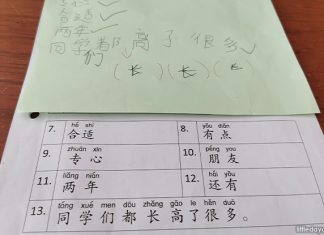 专心✓
合适✓
两年✓
同学都高了很多✓
们
(长)(长)(长
7. hé shì 合适
8. yǒu diǎn 有点
9. zhuān xīn 专心
10. péng you 朋友
11. liǎng nián 两年
12. hái yǒu 还有
13. tóng xué men dōu zhǎng gāo le hěn duō
同学们都长高了很多。
littledayo